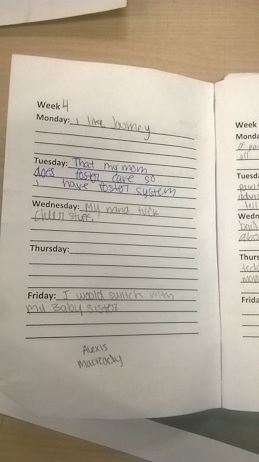 Week 4
Monday: i like Journey
Tuesday: That my mom
does foster care so
i have foster system
Wednesday: My nana tuck
Thursday:
Friday: I would switch with
my Baby sister
Alexis
Week
Monda
all
Tuesd
Wedn
Thurs
Frida